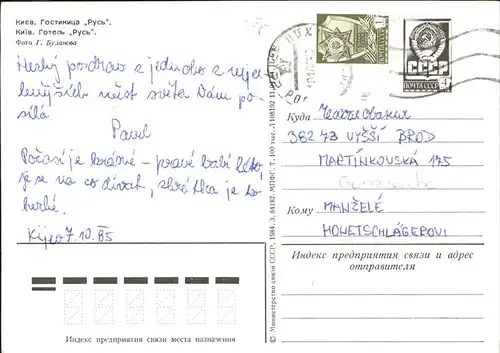 Киев. Гостиница „Русь“.
Київ. Готель „Русь“.
Фото Г. Буланова
Hezký pozdrav z jednoho z nejkrás
nějších měst světa Vám po-
sílá
Pavel
Počasí je krásné – pravé babí léto,
je se na co dívat, zkrátka je to
herbé.
Kijev 7.10.85
1
ПОЧТА СССР
4
Куда Чехословакия
382 73 VYŠŠÍ BROD
MARTÍNKOVSKÁ 175
Кому MANŽELÉ
HOWETSCHLÄGEROVI
Индекс предприятия связи и адрес
отправителя
Индекс предприятия связи места назначения
© Министерство связи СССР, 1984. З. 84182. МПФГ. Т. 100 тыс.